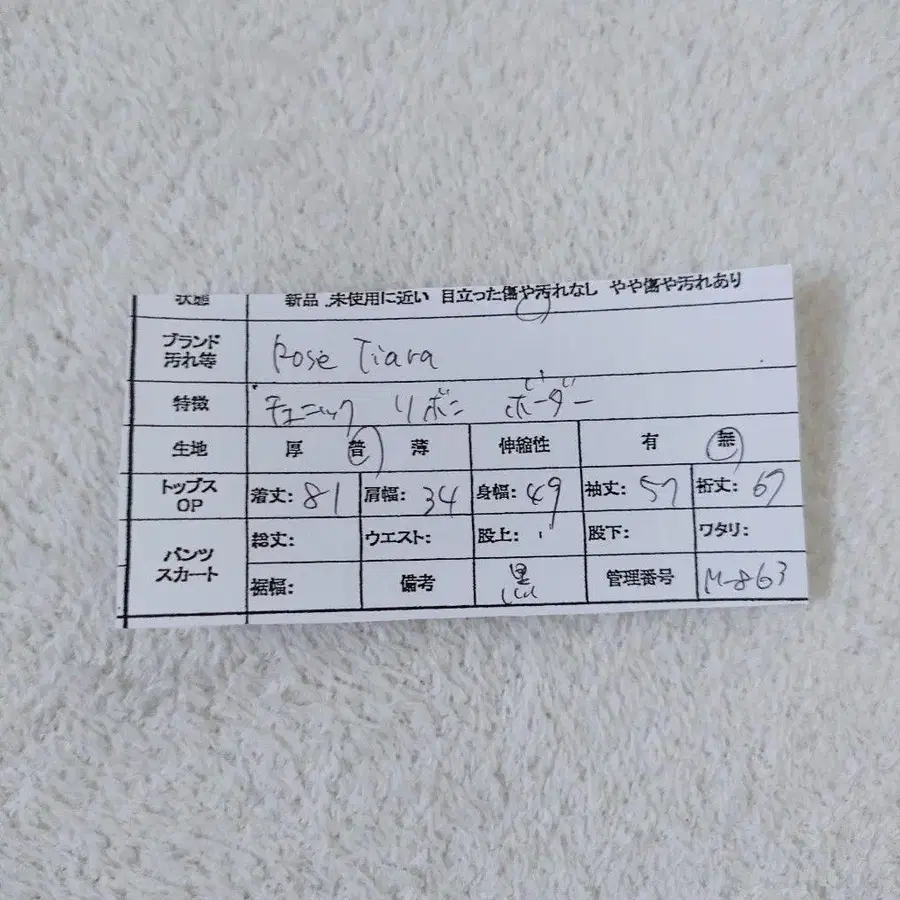 状態 新品 未使用に近い 目立った傷や汚れなし やや傷や汚れあり
ブランド 汚れ等 Rose Tiara
特徴 チュニック リボン ボーダー
生地 厚 普 薄 伸縮性 有 無
トップス OP 着丈: 81 肩幅: 34 身幅: 49 袖丈: 57 裄丈: 67
パンツ スカート 総丈: ウエスト: 股上: 股下: ワタリ:
裾幅: 備考 黒 管理番号 M-863